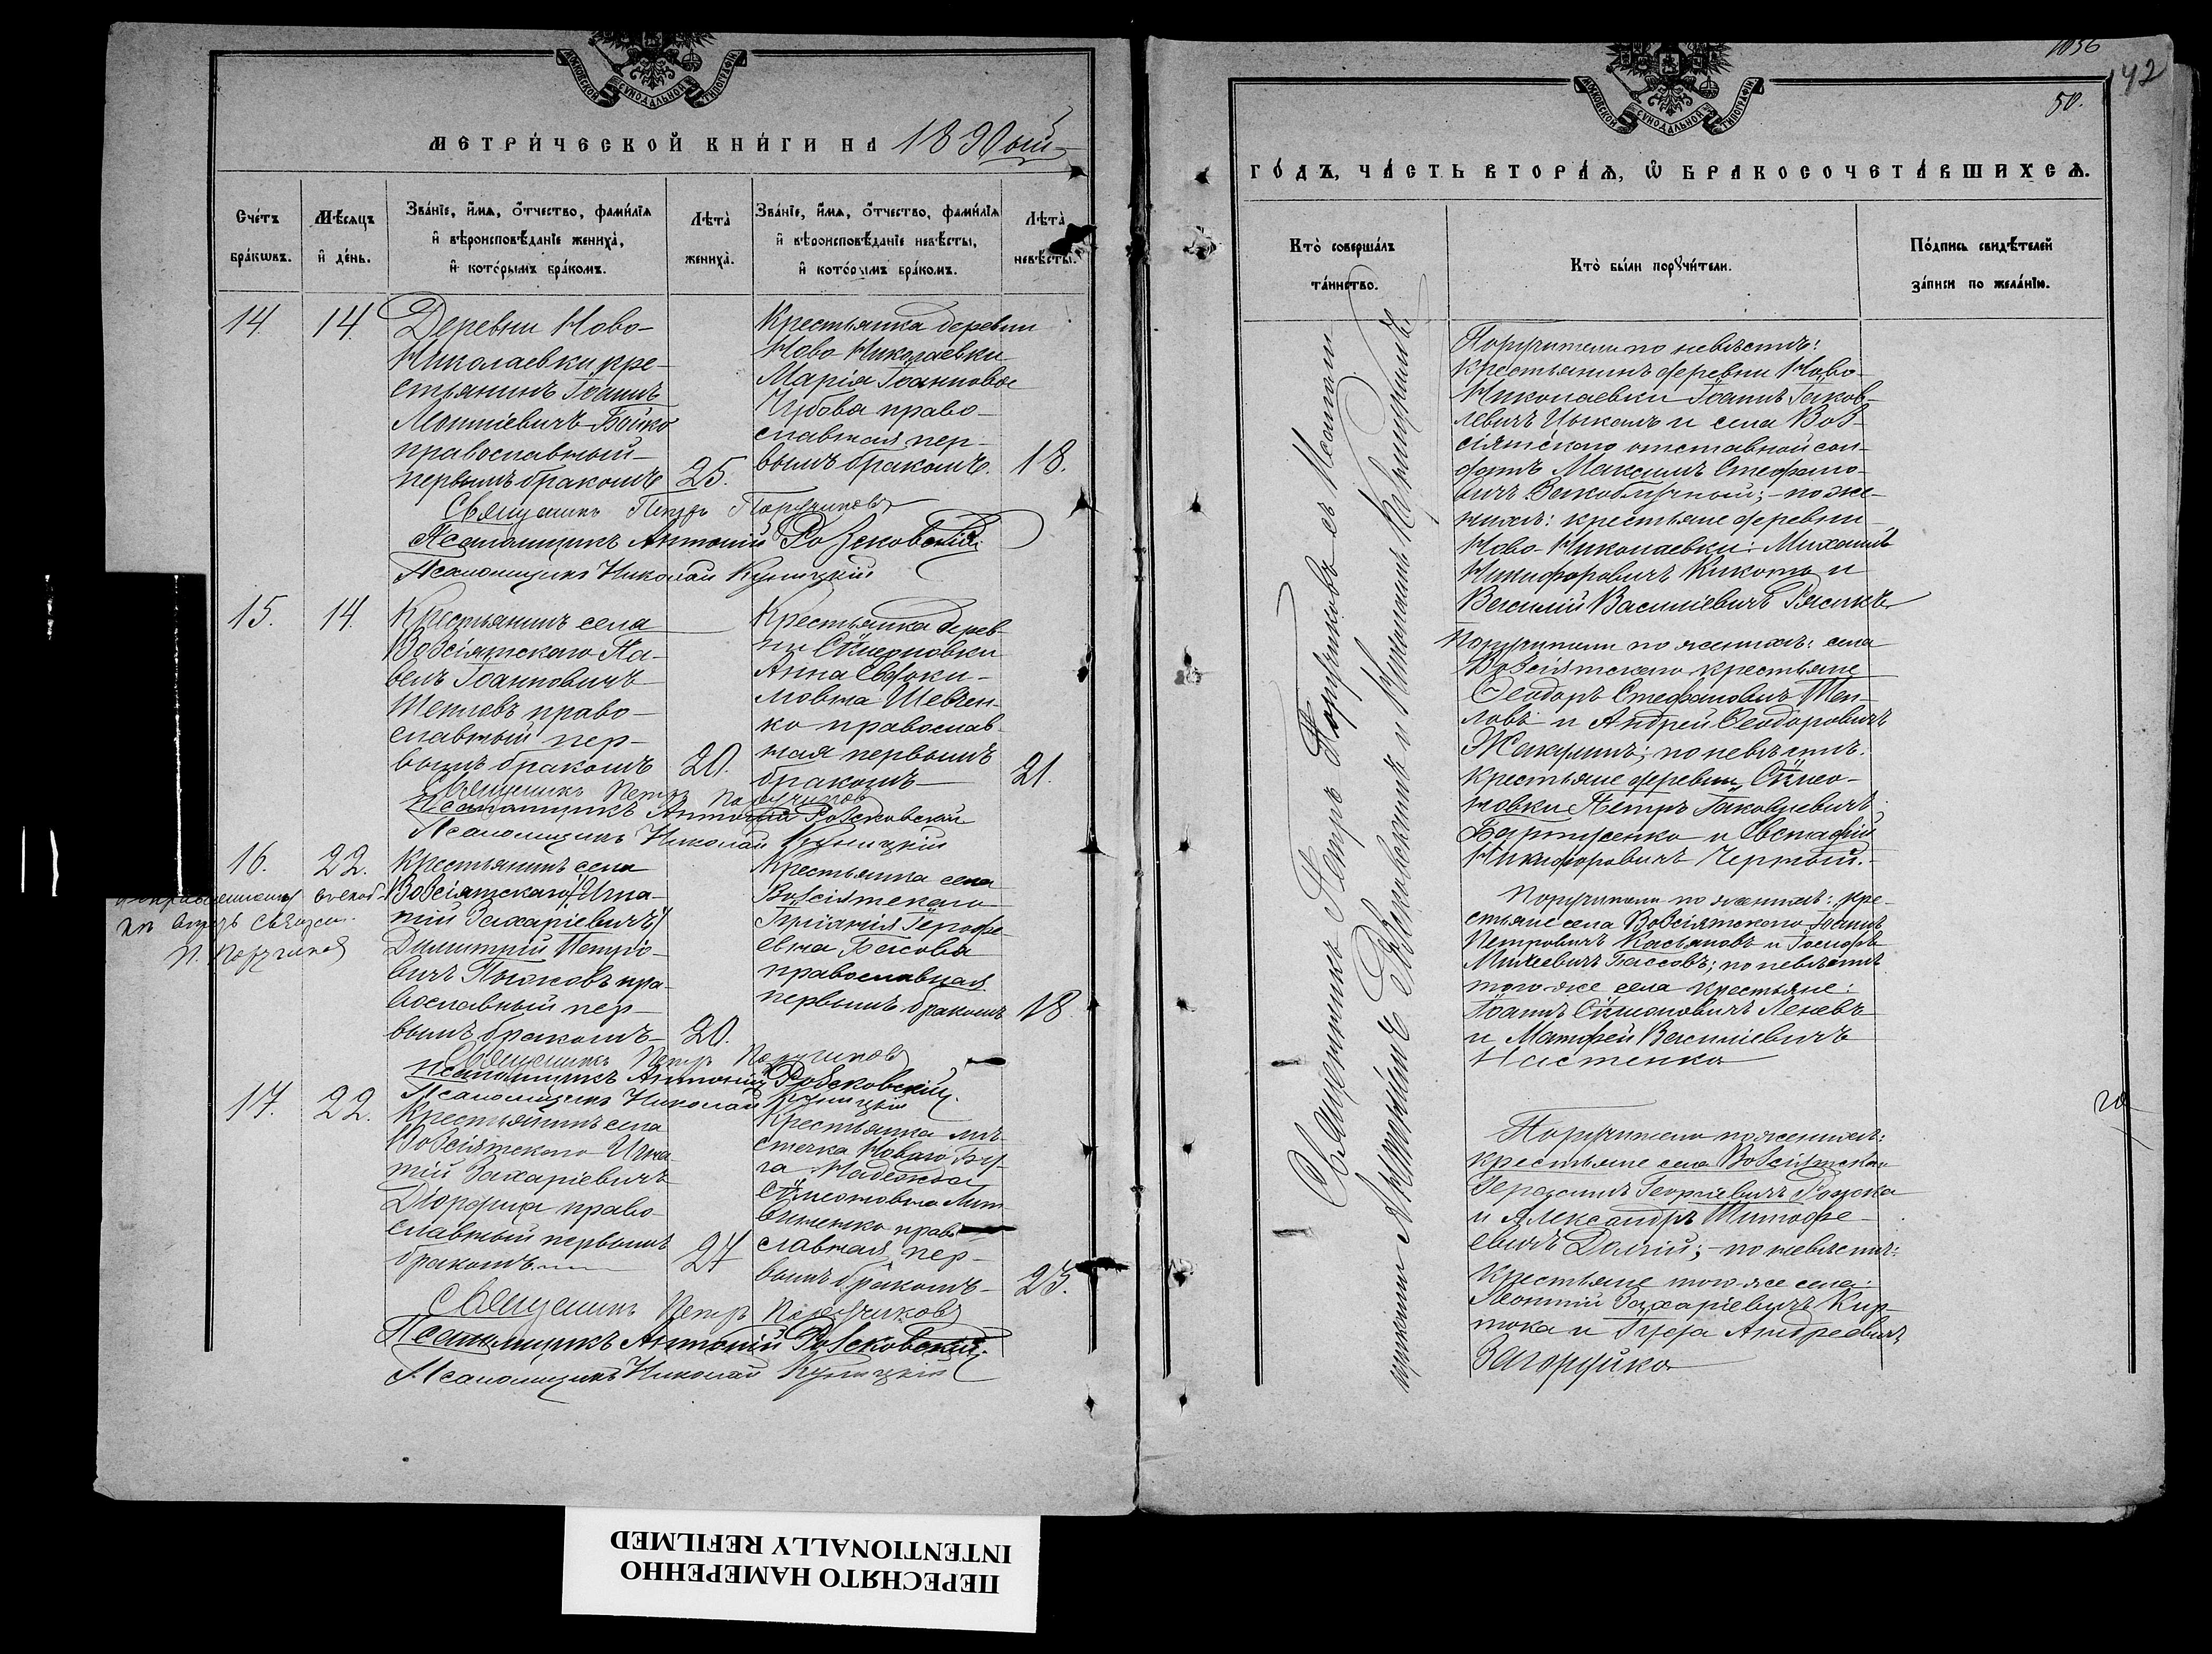 МОСКОВСКОЙ СУНОДАЛЬНОЙ ТИПОГРАФІИ
МЕТРИ́ЧЕСКОЙ КНИ́ГИ НА 1890ый
Счётъ бра́кѡвъ.
Мѣ́сяцъ и҆ де́нь.
Зва́нїе, и҆́мѧ, ѻ҆́тчество, фами́лїѧ
и҆ вѣроисповѣ́данїе жениха̀,
и҆ кото́рымъ бра́комъ.
Лѣта̀ жениха̀.
Зва́нїе, и҆́мѧ, ѻ҆́тчество, фами́лїѧ
и҆ вѣроисповѣ́данїе невѣ́сты,
и҆ кото́рымъ бра́комъ.
Лѣта̀ невѣ́сты.
14. 14.
Деревни Ново-
Николаевки кре-
стьянинъ Іоаннъ
Леонтіевичъ Бойко
православный
первымъ бракомъ 25.
Крестьянка деревни
Ново-Николаевки
Марія Іоаннова
Чубова право-
славная пер-
вымъ бракомъ. 18.
Священникъ Петръ Поручиковъ
Псаломщикъ Антоній Розсковскій
Псаломщикъ Николай Куницкій
15. 14.
Крестьянинъ села
Возсіятскаго Па-
велъ Іоанновичъ
Тепловъ право-
славный пер-
вымъ бракомъ 20.
Крестьянка дерев-
ни Сѵмоновки
Анна Евдоки-
мовна Шевчен-
ко православ-
ная первымъ
бракомъ 21.
Священникъ Петръ Поручиковъ
Псаломщикъ Антоній Розсковскій
Псаломщикъ Николай Куницкій
16. 22.
Крестьянинъ села
Возсіятскаго /Игна-
тій Захаріевичъ/
Димитрій Петро-
вичъ
православный пер-
вымъ бракомъ 20.
Крестьянка села
Возсіятскаго
Іерофе-
евна Басова
православная
первымъ бракомъ 18.
П. Поручиковъ
Священникъ Петръ Поручиковъ
Псаломщикъ Антоній Розсковскій.
Псаломщикъ Николай Куницкій
17. 22.
Крестьянинъ села
Возсіятскаго Игна-
тій Захаріевичъ
право-
славный первымъ
бракомъ 27
Крестьянка мѣ-
стечка Новаго Бу-
га Надежда
Сѵмеоновна Лит-
виненко право-
славная пер-
вымъ бракомъ 23.
Священникъ Петръ Поручиковъ
Псаломщикъ Антоній Розсковскій.
Псаломщикъ Николай Куницкій
1056
142
50.
МОСКОВСКОЙ СУНОДАЛЬНОЙ ТИПОГРАФІИ
ГО́ДЪ, ЧА́СТЬ ВТОРА́Ѧ, Ѽ БРАКОСОЧЕТА́ВШИХСѦ.
Кто̀ соверша́лъ та́инство.
Кто̀ бы́ли порꙋчи́тели.
По́дпись свидѣ́телей за́писи по жела́нїю.
Священникъ Петръ Поручиковъ съ Псалом-
щиками Антоніемъ Розсковскимъ и Николаемъ Куницкимъ
Поручители по невѣстѣ:
крестьянинъ деревни Ново-
Николаевки Іоаннъ Іаков-
левичъ Цыкалъ и села Воз-
сіятскаго отставной сол-
датъ Максимъ Стефано-
вичъ по же-
нихѣ: крестьяне деревни
Ново-Николаевки: Михаилъ
Никифоровичъ Кикоть и
Василій Василіевичъ
Поручители по женихѣ: села
Возсіятскаго крестьяне
Ѳеодоръ Стефановичъ Теп-
ловъ и Андрей Ѳеодоровичъ
по невѣстѣ:
крестьяне деревни Сѵмо-
новки Петръ Іаковлевичъ
и Евстафій
Никифоровичъ Черный.
Поручители по женихѣ: кре-
стьяне села Возсіятскаго Іоаннъ
Петровичъ Касьяновъ и Іосифъ
Михеевичъ Бассовъ; по невѣстѣ
того же села крестьяне:
Іоаннъ Сѵмоновичъ
и Матфей Василіевичъ
Настенко
Поручители по женихѣ:
крестьяне села Возсіятскаго
Герасимъ Георгіевичъ
и Александръ Тимофе-
евичъ Долгій; по невѣстѣ:
крестьяне того же села:
Леонтій Захаріевичъ Кир-
и Андреевичъ
Загоруйко
ПЕРЕСНЯТО НАМЕРЕННО
INTENTIONALLY REFILMED